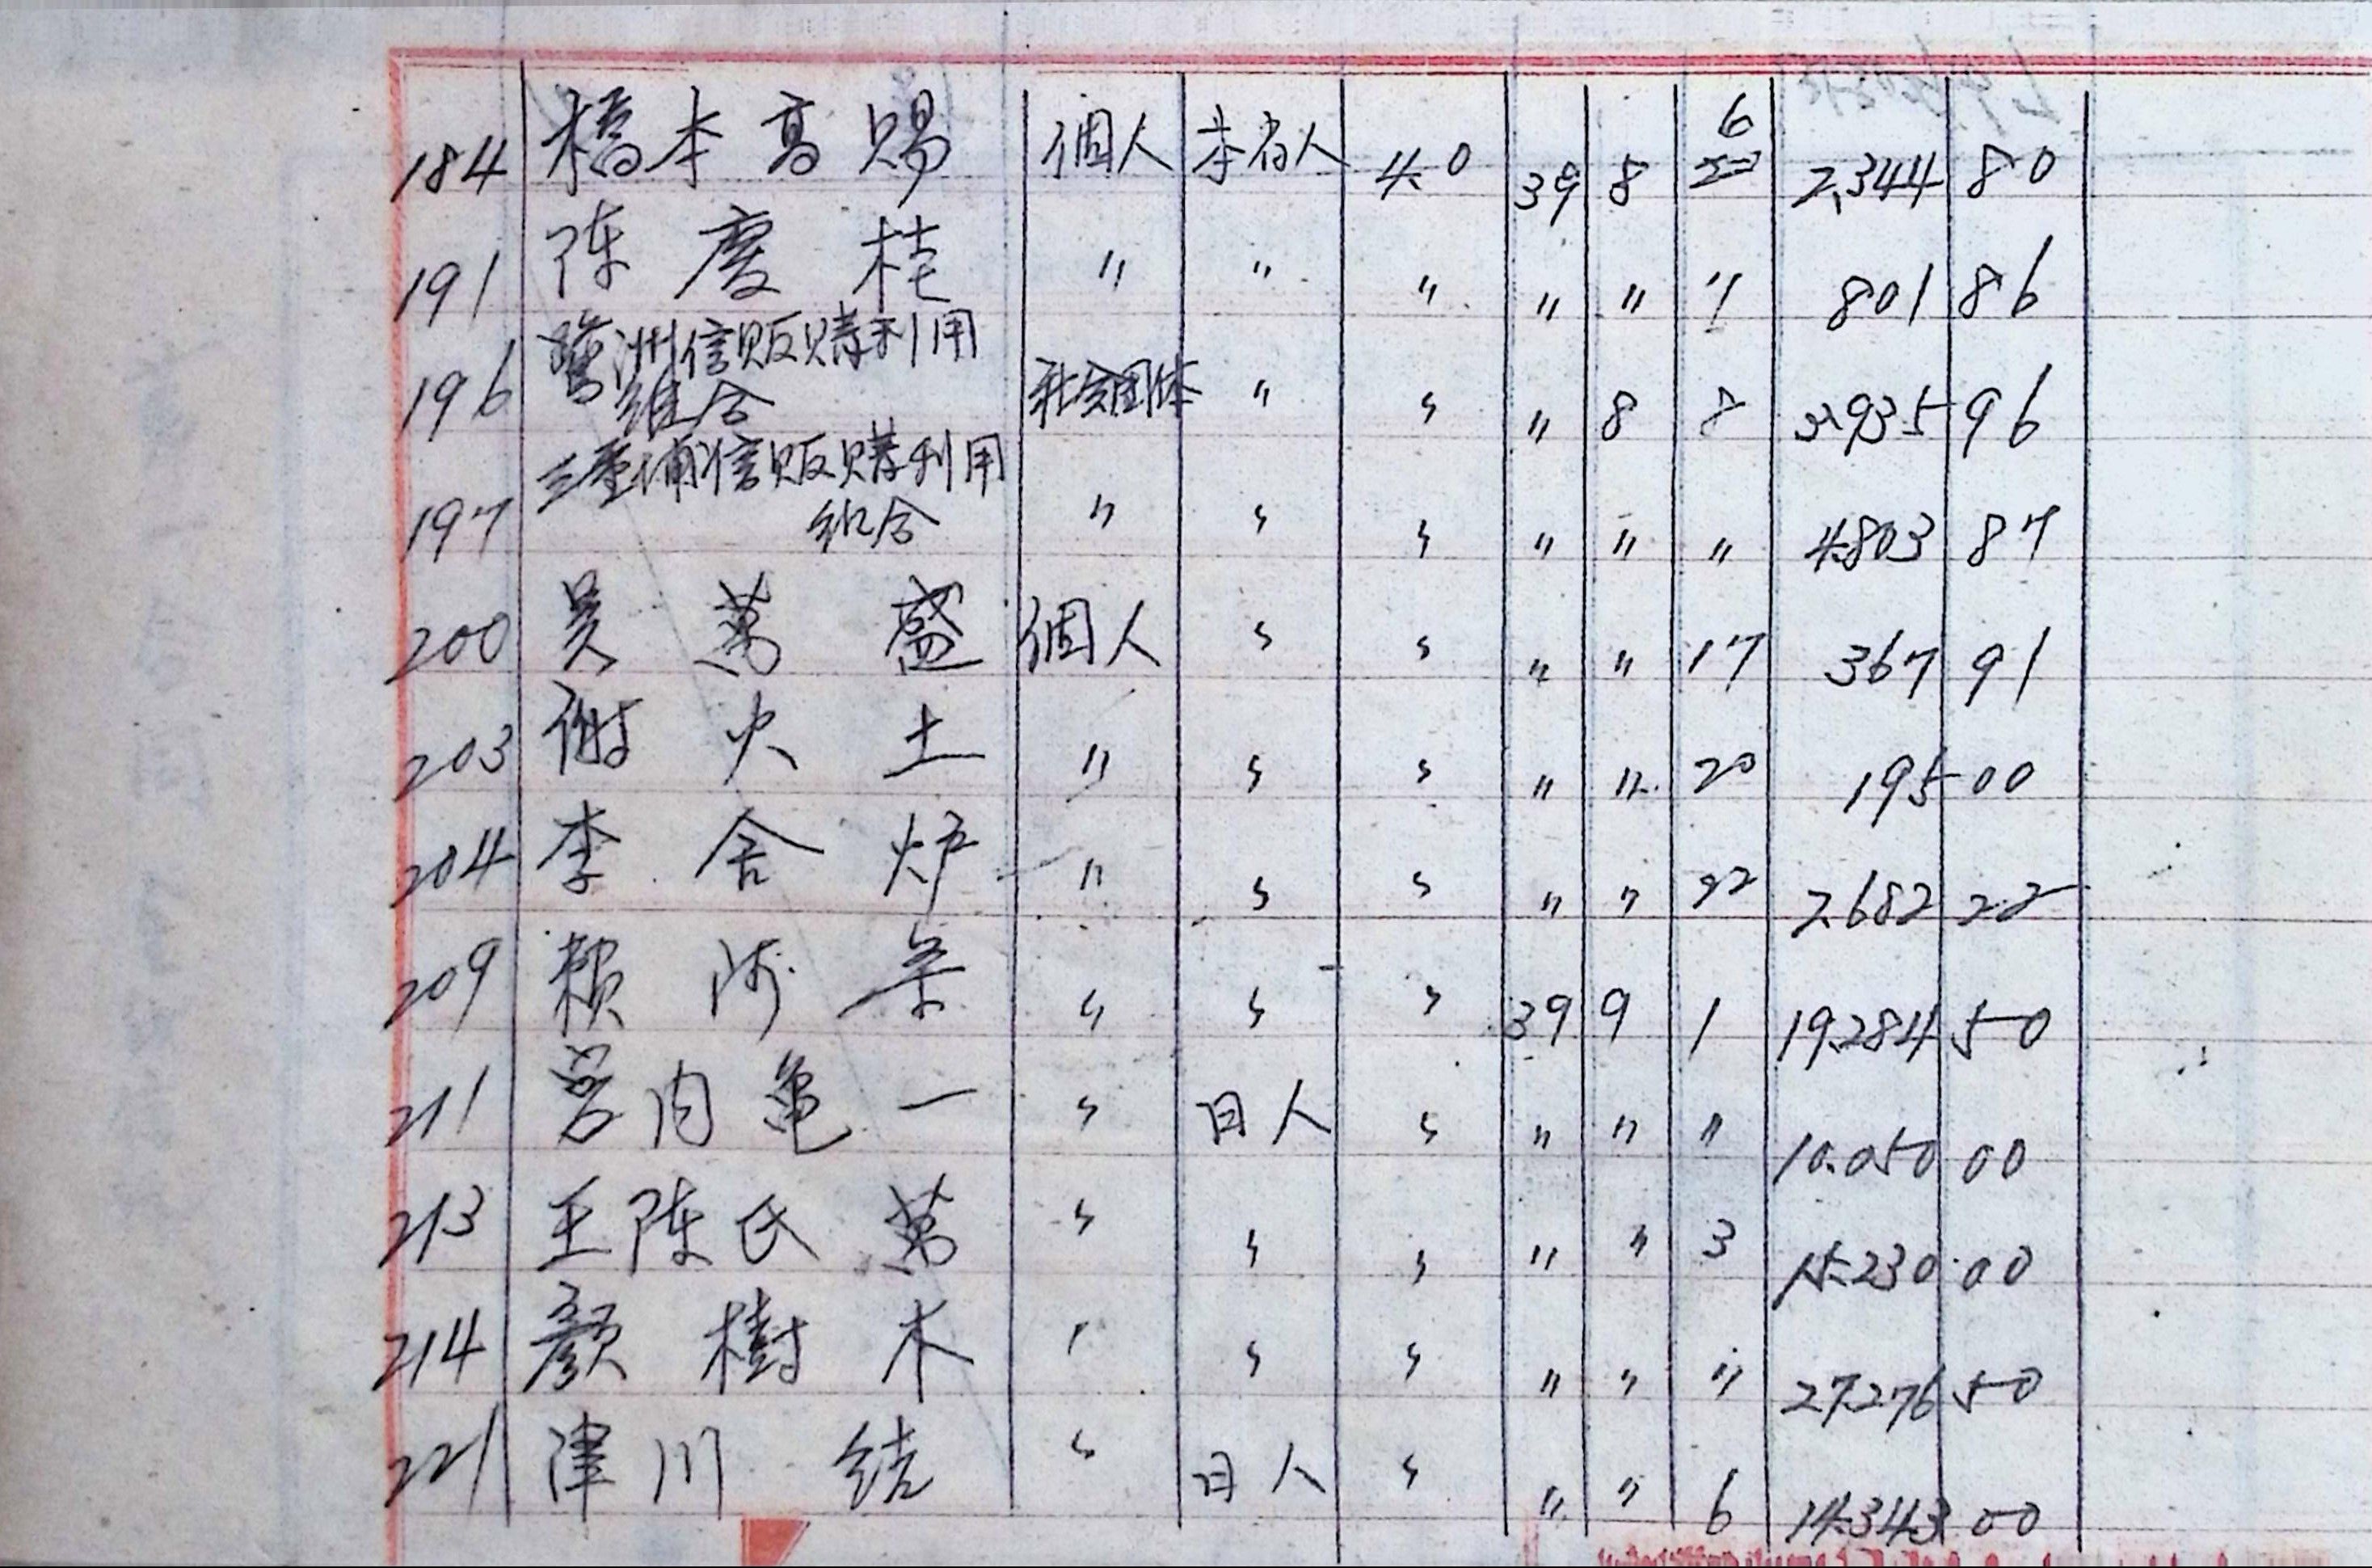 184 橋本高賜 個人 本省人 4.0 39 8 6 2,344 80
191 陳慶桂 〃 〃 〃 〃 〃 7 801 86
196 鷺洲信販購利用組合 社会団体 〃 〃 〃 8 8 3.935 96
197 三重埔信販購利用組合 〃 〃 〃 〃 〃 〃 4.803 87
200 吴萬盛 個人 〃 〃 〃 〃 17 367 91
203 謝火土 〃 〃 〃 〃 〃 20 195 00
204 李舍炉 〃 〃 〃 〃 〃 22 2.682 22
209 賴河 〃 〃 〃 39 9 1 19.284 50
211 宮内亀一 〃 日人 〃 〃 〃 〃 10.050 00
213 王陈氏萬 〃 〃 〃 〃 〃 3 15.230 00
214 顏樹木 〃 〃 〃 〃 〃 〃 27.276 50
221 津川 結 〃 日人 〃 〃 〃 6 14.343 00